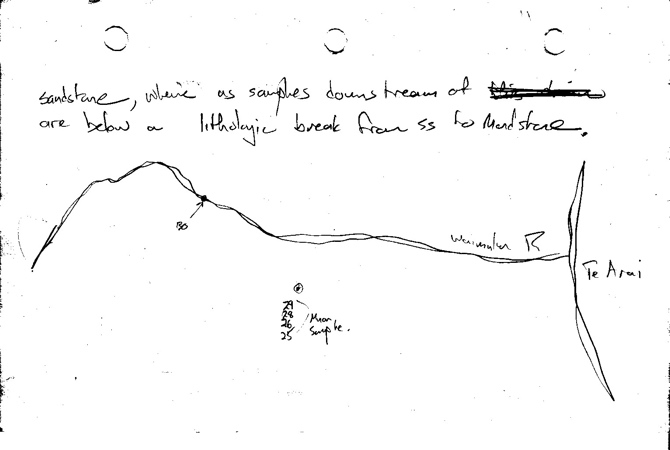 sandstone, where as samples downstream of
are below a lithologic break from ss to Mudstone.
R
Te Arai
29
28
26
25
sample.